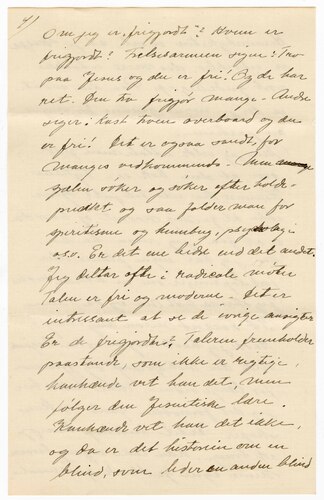 4/
Om jeg er "frigjordt"? Hvem er
frigjordt? Frelsesarmien siger: Tro
paa Jesus og du er fri! Og de har
ret. Den tro frigjør mange. Andre
siger: Kast troen overboard og du
er fri! Det er ogsaa sandt, for
manges vedkommende. Men
sjælen søker og søker efter holde-
punktet, og saa falder man for
spiritisme og humbug, psykologi
o.s.v. Er det ene bedre end det andet.
Jeg deltar ofte i radicale møter
Talen er fri og moderne. Det er
intressant at se de ivrige ansigter
Er de frigjordte? Taleren fremholder
paastande, som ikke er rigtige,
kanhænde vet han det, men
følger den Jesuitiske lære.
Kanhænde vet han det ikke,
og da er det historien om en
blind, som leder en anden blind